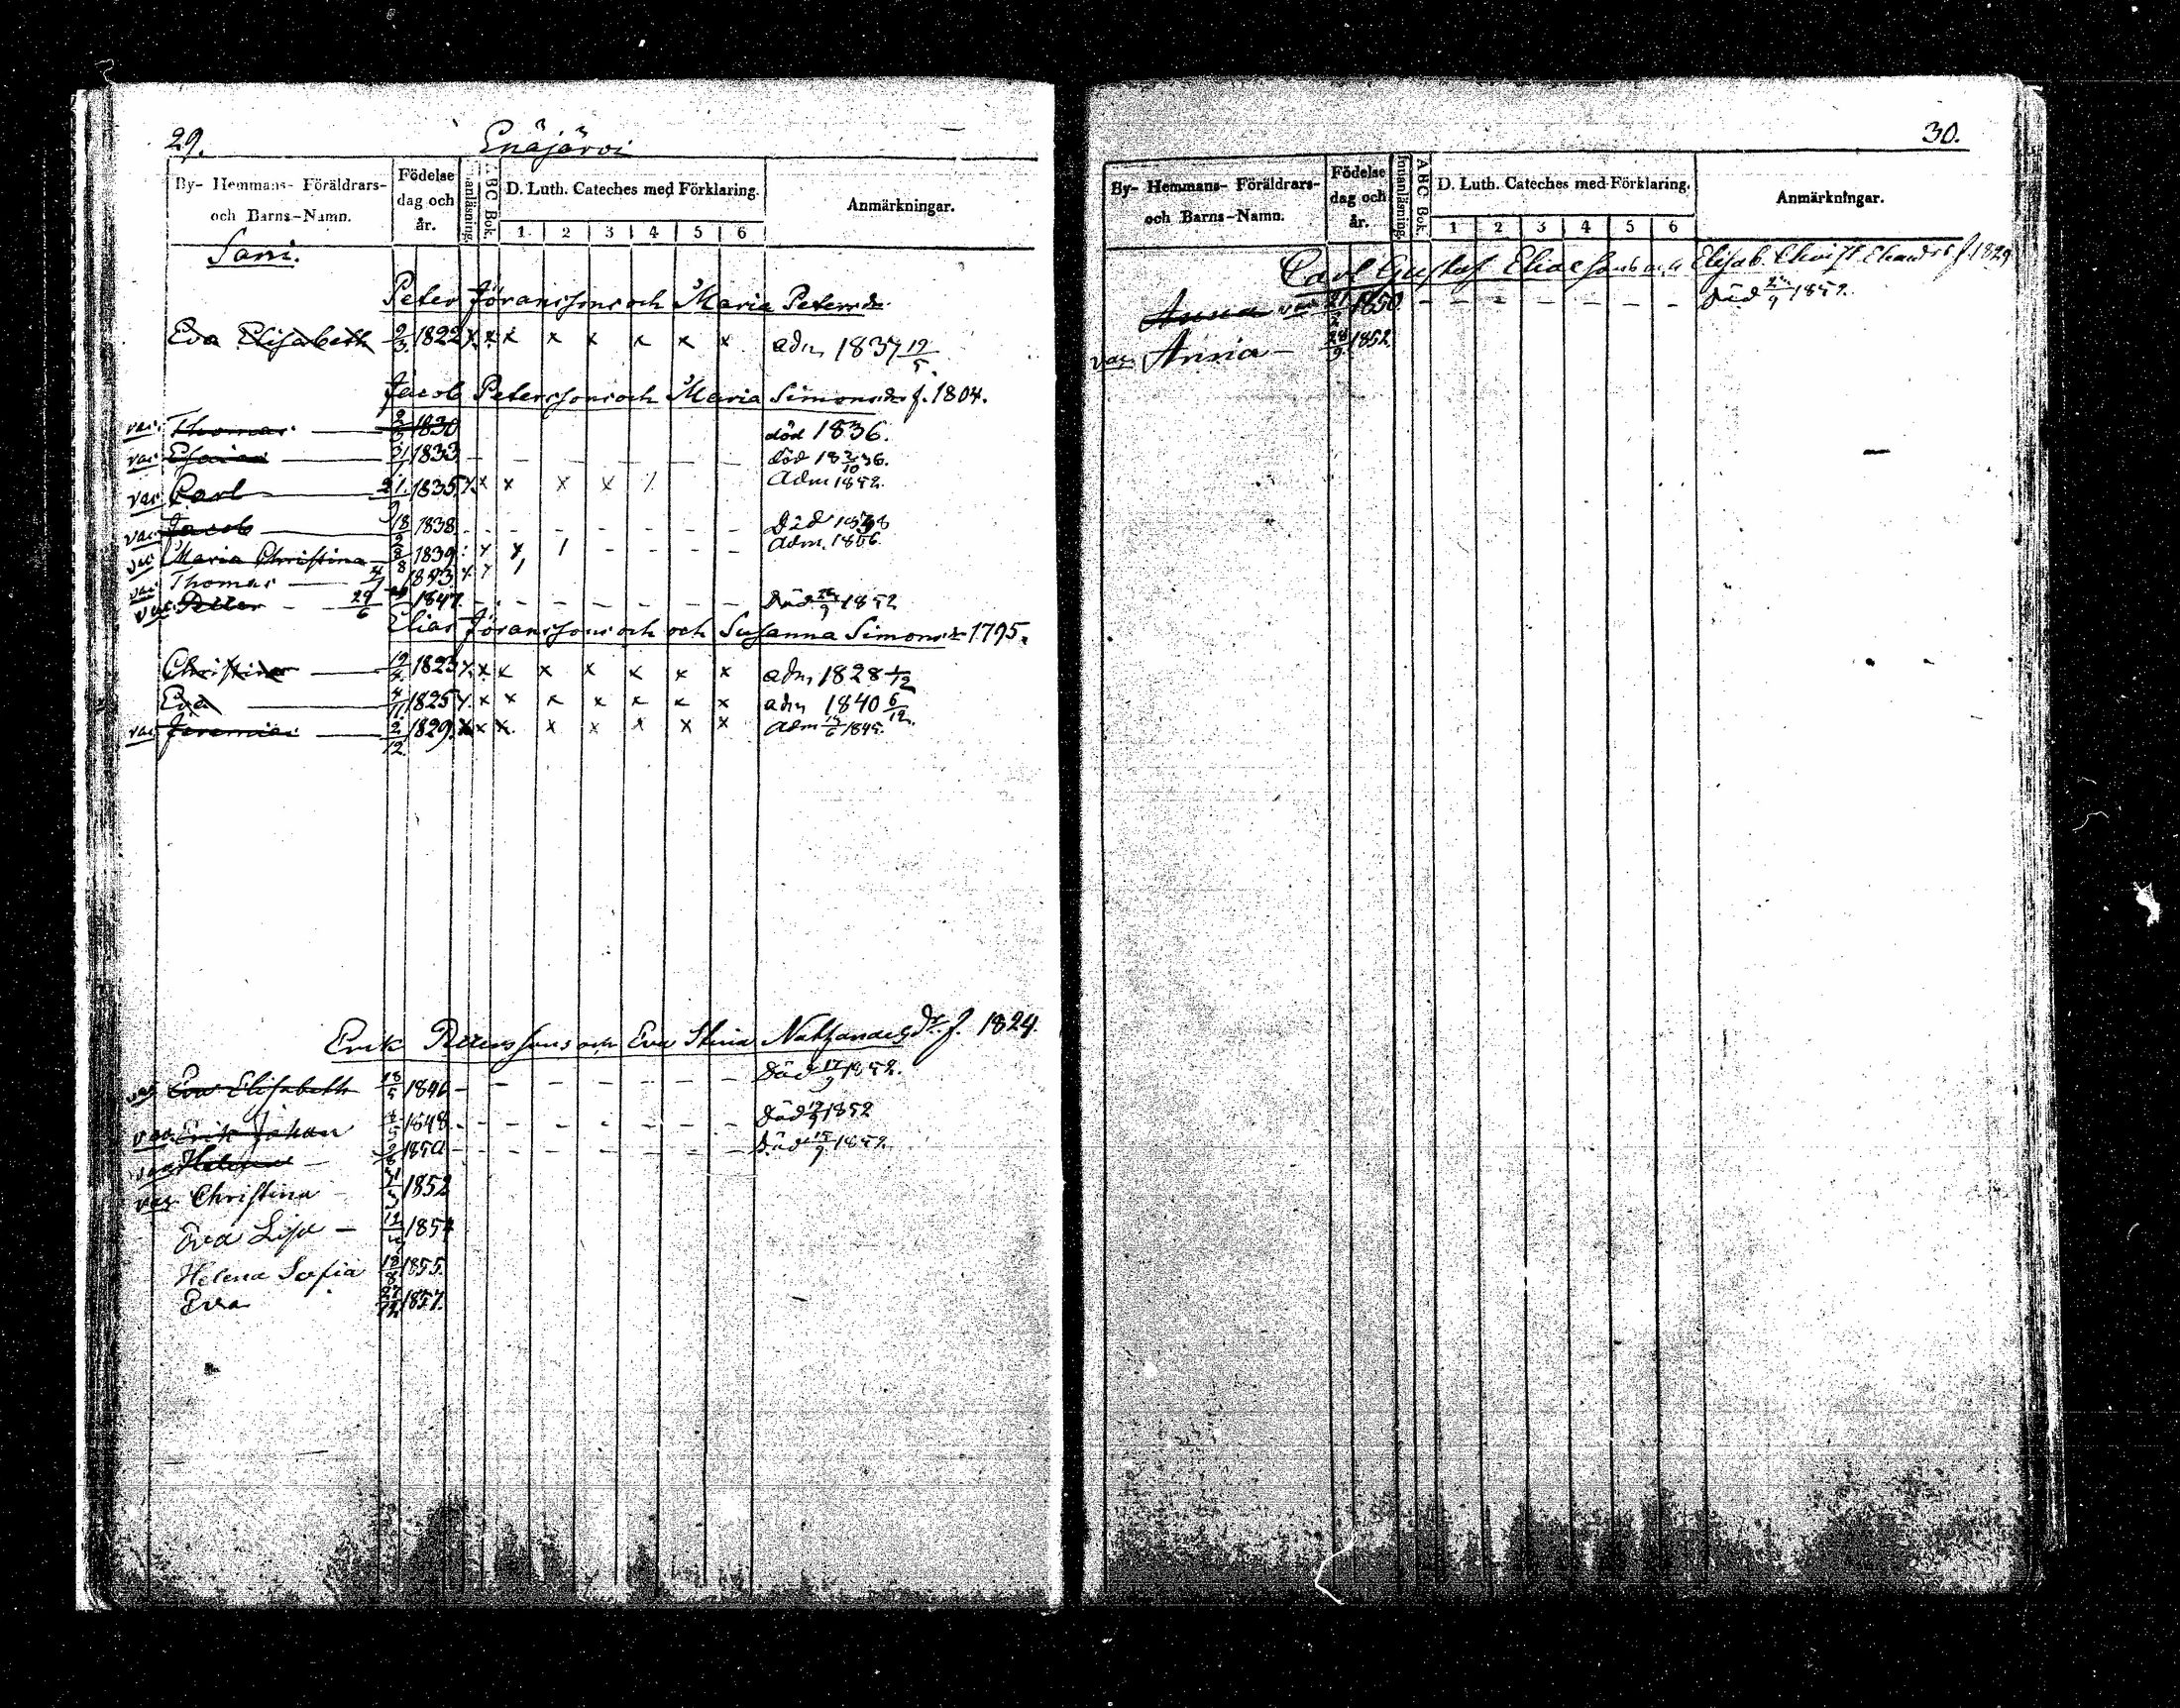 29. Enäjärvi
By- Hemmans- Föräldrars- och Barns-Namn. Födelse dag och år. Innanläsning. ABC Bok. D. Luth. Cateches med Förklaring. 1 2 3 4 5 6 Anmärkningar.
Sani.
Peter Jöranssons och Maria Petersdr
Eva Elisabeth 2/3. 1822 x x x x x x x x adm 1837 19/5.
Jacob Peterssons och Maria Simonsdr f. 1804.
vac. Thomas 1830 död 1836.
vac Esaias 31/1 1833 - - - - - - död 18 2/10 36.
vac Carl 21/9 1835 x x x x x / Adm 1852.
vac Jacob 18/2 1838 - - - - - - Död 1838
vac Maria Christina 2/8 1839 x x / - - - - Adm. 1856
vac Thomas 1843 x x /
vac Petter - 29/6 1847 - - - - - - Död 1852
Elias Jöranssons och och Susanna Simonsdr 1795.
Christina 19/4 1823 x x x x x x x x adm 1828 1/12
Eva 4/11. 1825 x x x x x x x x adm 1840 6/12.
vac Jeremias 2/12. 1829 x x x x x x x x Adm 1845.
Erik Peterssons och Eva Stina dr f. 1824.
vac Eva Elisabeth 18/5 1846 - - - - - - - Död 17/9 1852.
vac Erik Johan 1848 - - - - - - - Död 1852
vac Helena - 1850 - - - - - - - Död 15/9 1852.
vac Christina 1852
Eva Lisa - 1854
Helena Sofia 12/8 1855.
Eva 27/12 1857.
30.
By- Hemmans- Föräldrars- och Barns-Namn. Födelse dag och år. Innanläsning. ABC Bok. D. Luth. Cateches med Förklaring. 1 2 3 4 5 6 Anmärkningar.
Carl Gustaf Eliassons och Elisab. Christ. f. 1829
Anna vac 1850. - - - - - - Död 1852.
vac Anna - 28/9. 1852.